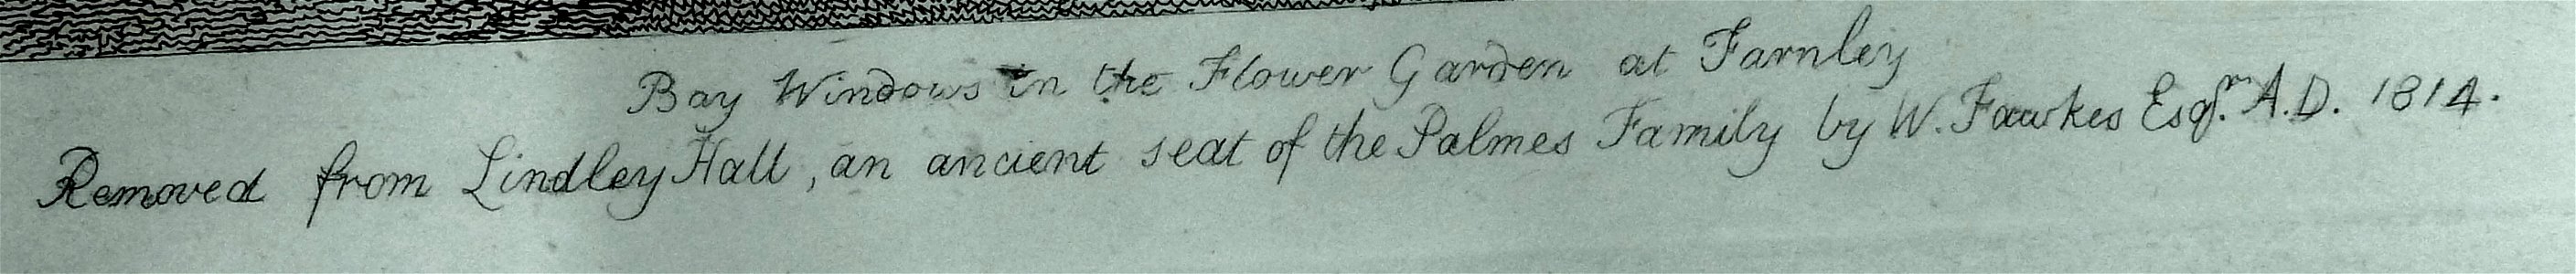 Bay Windows in the Flower Garden at Farnley
Removed from Lindley Hall, an ancient seat of the Palmes Family by W. Fawkes Esqr. A.D. 1814.